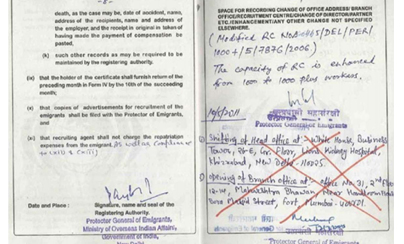 death, as the case may be, date of accident, names,
address of the recipients, name and address of the
employer, and the receipt in original in token of
having made the payment of compensation be
pasted,
(k) such other records as may be required to
maintained by the registering authority.
(ix) that the holder of the certificate shall furnish return of the
preceding month in Form IV by the 10th of the succeeding
month;
(x) that copies of advertisements for recruitment of the
emigrants shall be filed with the Protector of Emigrants,
and
(xi) that recruiting agent shall not charge the repatriation
expenses from the emigrant.
Signature, name and seal of the
Registering Authority.
Protector General of Emigrants,
Ministry of Overseas Indian Affairs,
Government of India,
New Delhi
SPACE FOR RECORDING CHANGE OF OFFICE ADDRESS/ BRANCH
OFFICE/RECRUITMENT CENTRE/CHANGE OF DIRECTOR/PARTNER
ETC./ENHANCEMENT/ANY OTHER CHANGE NOT SPECIFIED
ELSEWHERE.
(Modified RC No /DEL/PER/
1000+/5/7876/2006)
The capacity of RC is enhanced
from 1000 to 1000 plus workers.
Protector General of Emigrants
Shifting of Head office at :- White House, Business
Tower, Floor, Lions Kidney Hospital,
New Delhi
Opening of Branch office at :- office No. 31, 2nd Floor
12-14, Maharashtra Bhawan, Near Handloom House
Bora Masjid Street, Fort, Mumbai - 400001.
Protector General of Emigrants